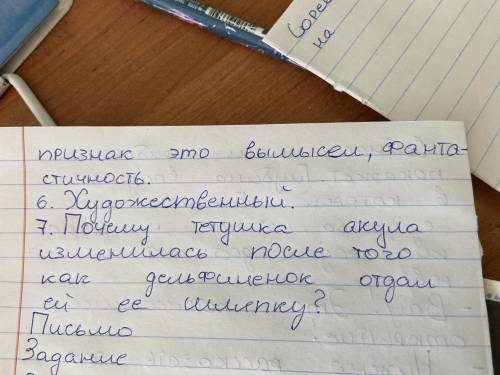 Сорев
на
признак это вымысел, фанта-
стичность.
6. Художественный.
7. Почему тетушка акула
изменилась после того
как дельфиненок отдал
ей ее шляпку?
Письмо
Задание